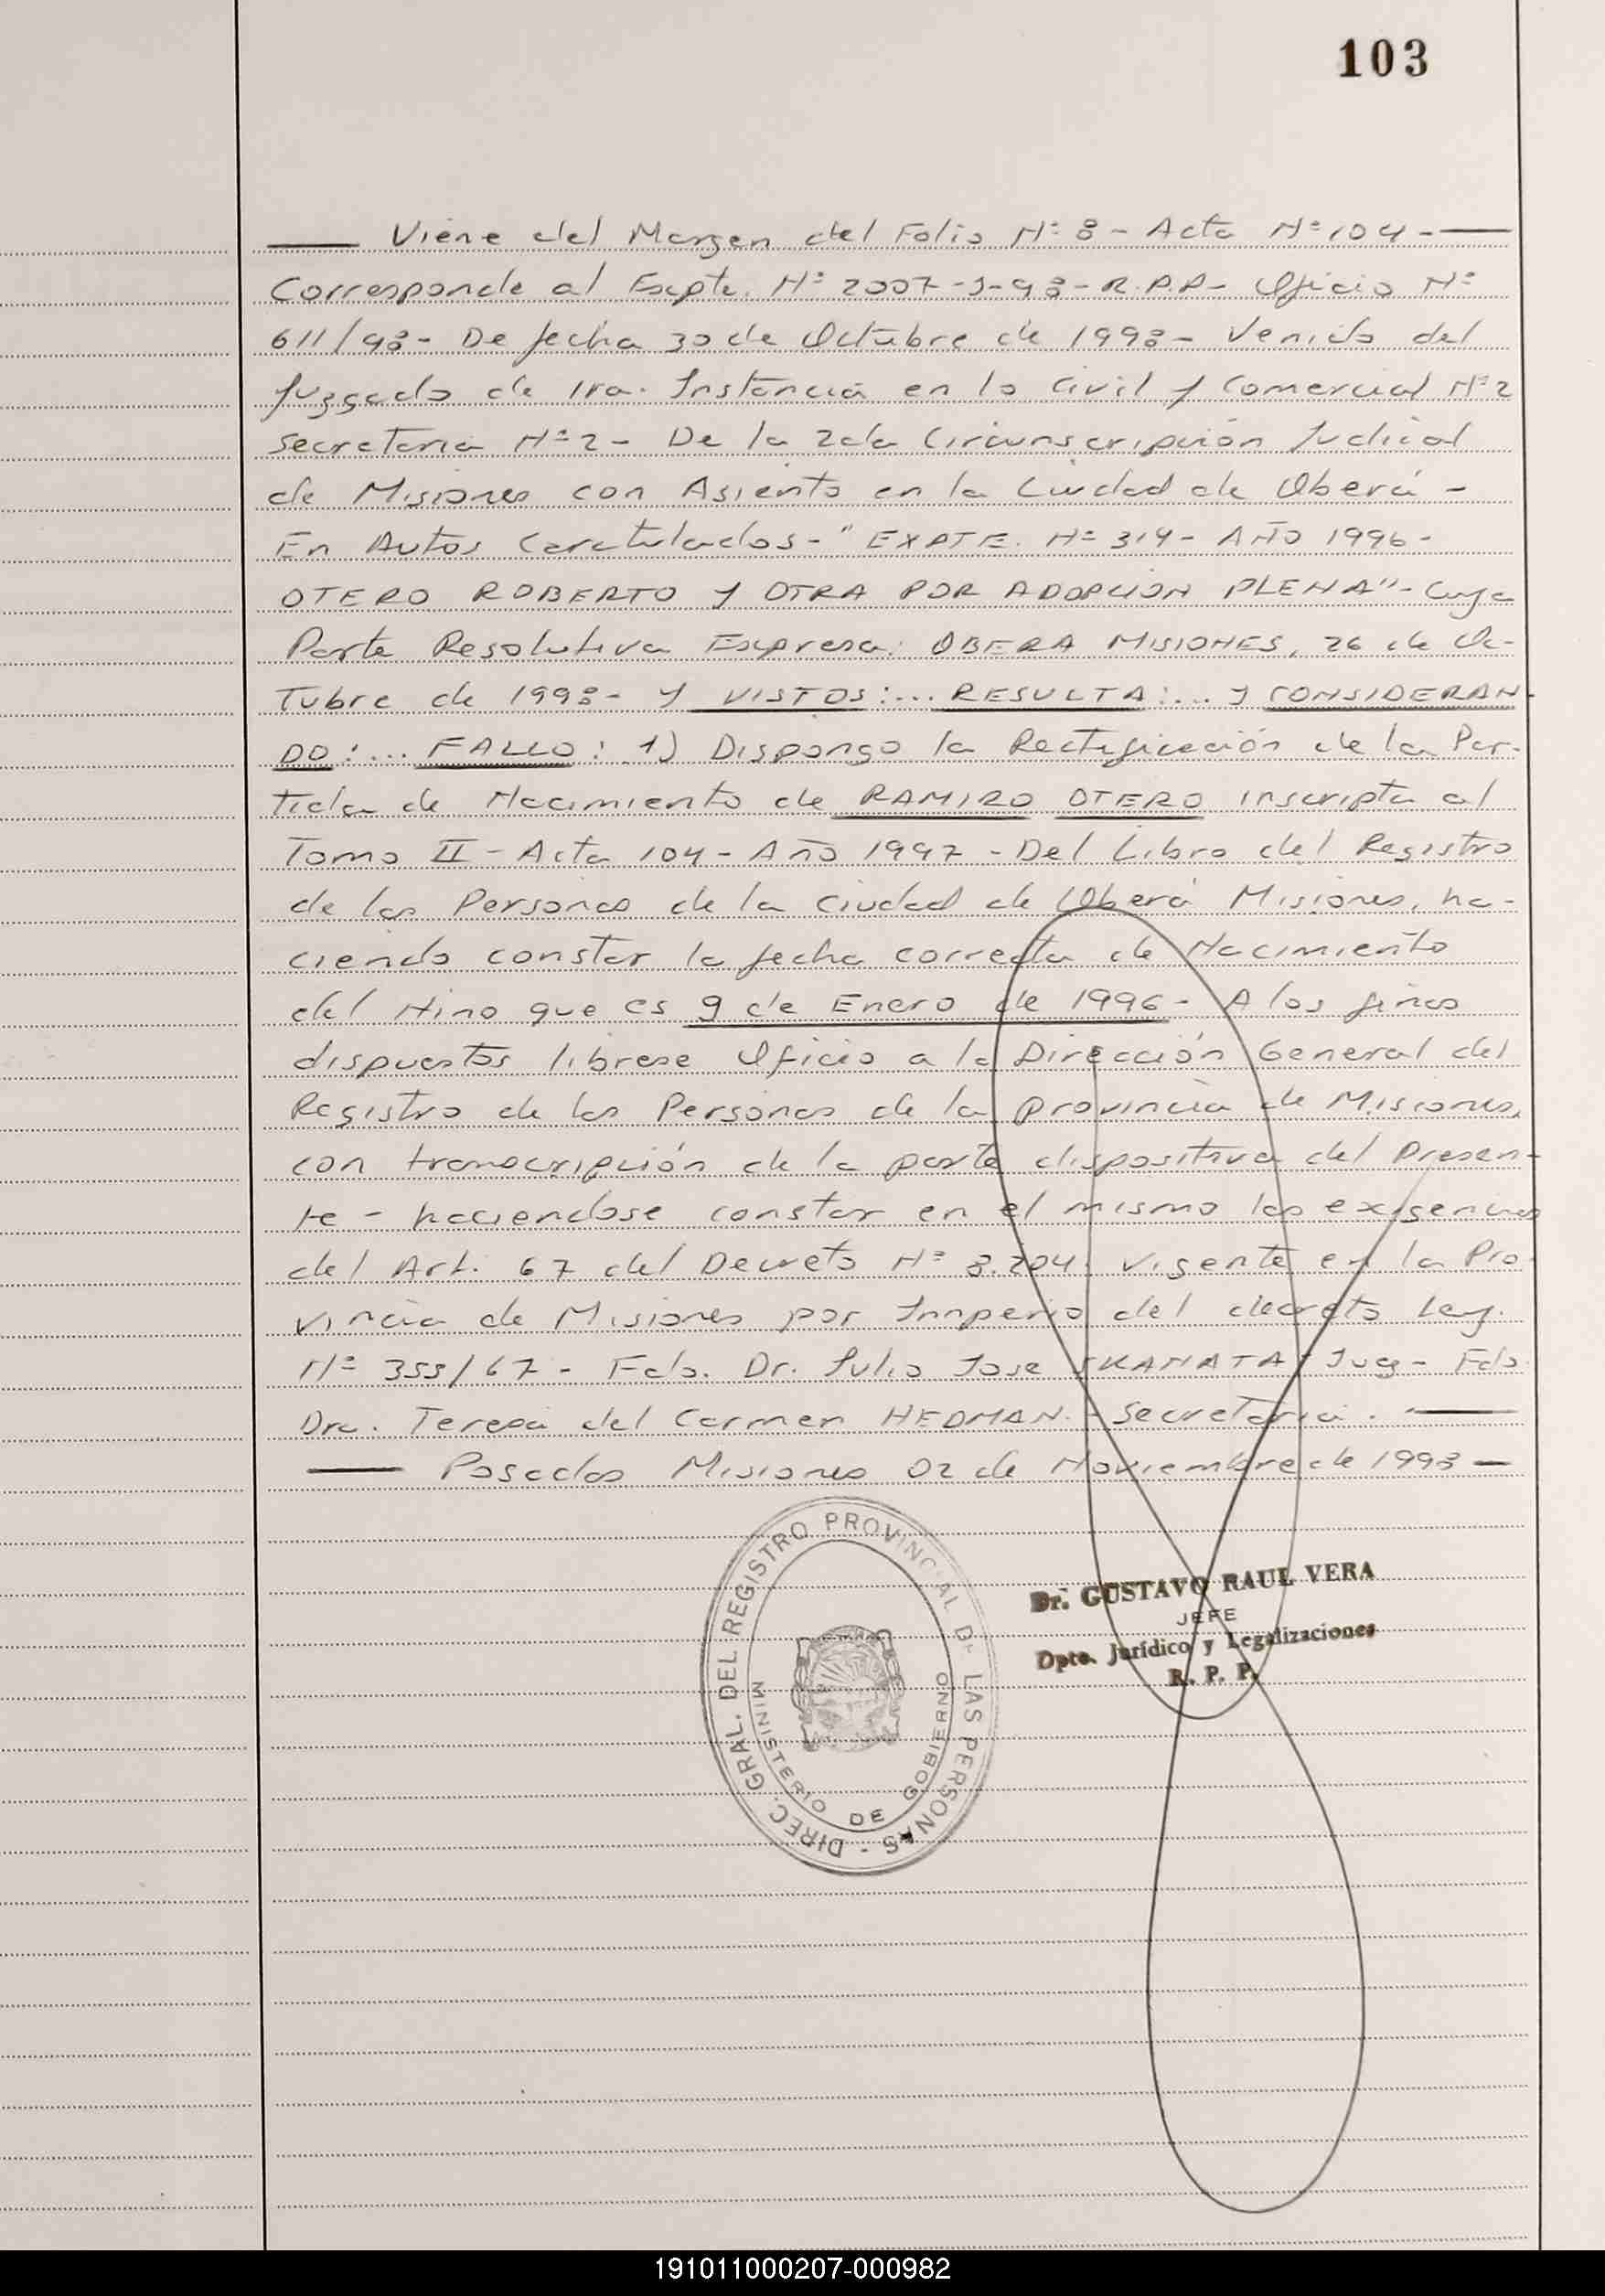 103
Viene del Margen del Folio Nº 8 - Acta Nº 104 -
Corresponde al Expte. Nº 2007-J-98-R.P.P- Oficio Nº
611/98- De fecha 30 de Octubre de 1998- Venido del
Juzgado de 1ra. Instancia en lo Civil y Comercial Nº2
Secretaria Nº2- De la 2da Circunscripción Judicial
de Misiones con Asiento en la Ciudad de Oberá -
En Autos Caratulados-"EXPTE. Nº 319- AÑO 1996-
OTERO ROBERTO Y OTRA POR ADOPCION PLENA"- Cuya
Parte Resolutiva Expresa: OBERA MISIONES, 26 de Oc-
Tubre de 1998- Y VISTOS:... RESULTA:... Y CONSIDERAN-
DO:... FALLO: 1) Dispongo la Rectificación de la Par-
Tida de Nacimiento de RAMIRO OTERO inscripta al
Tomo II - Acta 104 - Año 1997 - Del Libro del Registro
de las Personas de la Ciudad de Oberá Misiones, ha-
ciendo constar la fecha correcta de Nacimiento
del Niño que es 9 de Enero de 1996- A los fines
dispuestos librese Oficio a la Dirección General del
Registro de las Personas de la Provincia de Misiones,
con transcripción de la parte dispositiva del Presen-
te - haciendose constar en el mismo las exigencias
del Art. 67 del Decreto Nº 8.204. Vigente en la Pro-
vincia de Misiones por Imperio del decreto Ley.
Nº 355/67 - Fdo. Dr. Julio Jose SKANATA - Juez - Fdo.
Dra. Teresa del Carmen HEDMAN. - Secretaria.
Posadas Misiones 02 de Noviembre de 1998
DIREC. GRAL. DEL REGISTRO PROVINCIAL DE LAS PERSONAS -
MINISTERIO DE GOBIERNO
Dr. GUSTAVO RAUL VERA
JEFE
Dpto. Jurídico y Legalizaciones
R. P. P.
191011000207-000982